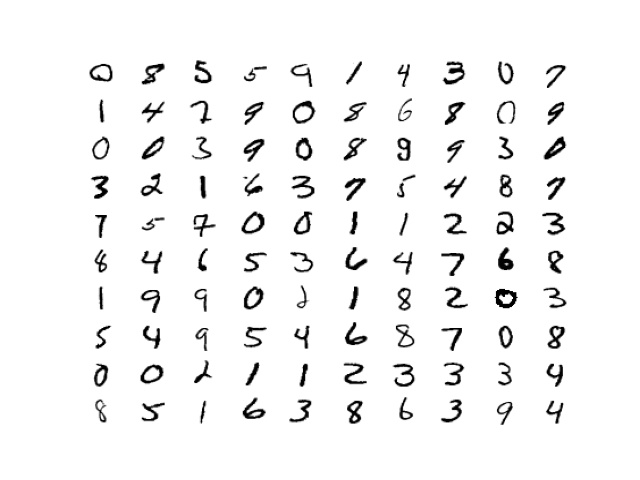 0 8 5 5 9 1 4 3 0 7
1 4 7 9 0 8 6 8 0 9
0 0 3 9 0 8 9 9 3 0
3 2 1 6 3 7 5 4 8 7
7 5 7 0 0 1 1 2 2 3
8 4 6 5 3 6 4 7 6 8
1 9 9 0 2 1 8 2 0 3
5 4 9 5 4 6 8 7 0 8
0 0 2 1 1 2 3 3 3 4
8 5 1 6 3 8 6 3 9 4